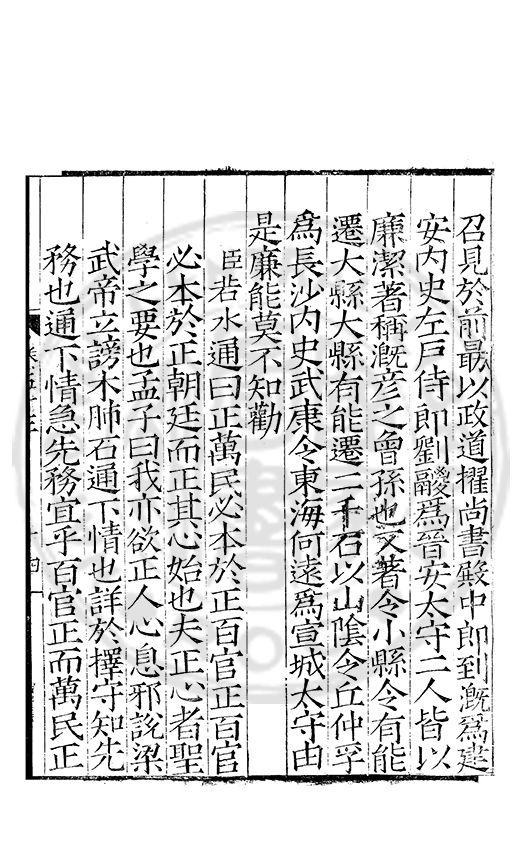 召見於前勗以政道擢尚書殿中郎到漑爲建
安内史左戶侍郎劉鬷爲晉安太守二人皆以
廉潔著稱漑彦之曾孫也又著令小縣令有能
遷大縣大縣有能遷二千石以山陰令丘仲孚
爲長沙内史武康令東海何遠爲宣城太守由
是廉能莫不知勸
臣若水通曰正萬民必本於正百官正百官
必本於正朝廷而正其心始也夫正心者聖
學之要也孟子曰我亦欲正人心息邪說梁
武帝立謗木肺石通下情也詳於擇守知先
務也通下情急先務宜乎百官正而萬民正